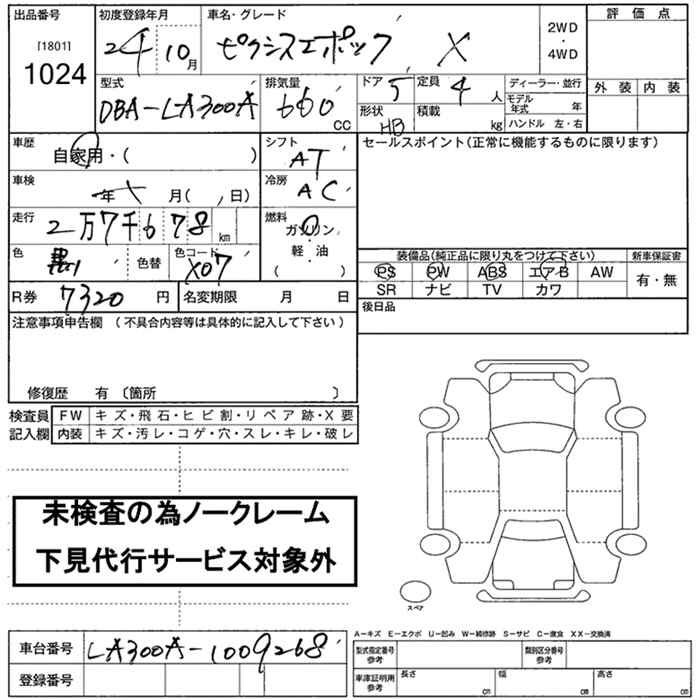 出品番号 初度登録年月 車名・グレード 評価点
[1801] 24 10月 ピクシスエポック X 2WD・4WD
1024
型式 排気量 ドア 5 定員 4人 ディーラー・並行 外装 内装
DBA-LA300A 660 CC 形状 HB 積載 kg モデル年式 年
ハンドル 左・右
車歴 自家用・( ) シフト AT セールスポイント(正常に機能するものに限ります)
車検 年 月( 日) 冷房 AC
走行 2万7千678km 燃料 ガソリン
軽・油
( )
色 黒 色替 色コード X07 装備品(純正品に限り丸をつけて下さい) 新車保証書
PS PW ABS エアB AW 有・無
SR ナビ TV カワ
R券 7320円 名変期限 月 日 後日品
注意事項申告欄 (不具合内容等は具体的に記入して下さい)
修復歴 有 〔箇所 〕
検査員 FW キズ・飛石・ヒビ割・リペア跡・X要
記入欄 内装 キズ・汚レ・コゲ・穴・スレ・キレ・破レ
未検査の為ノークレーム
下見代行サービス対象外
スペア
A-キズ E-エクボ U-凹み W-補修跡 S-サビ C-腐食 XX-交換済
車台番号 LA300A-1009268 型式指定番号 参考 類別区分番号 参考
登録番号 車庫証明用 参考 長さ cm 幅 cm 高さ cm